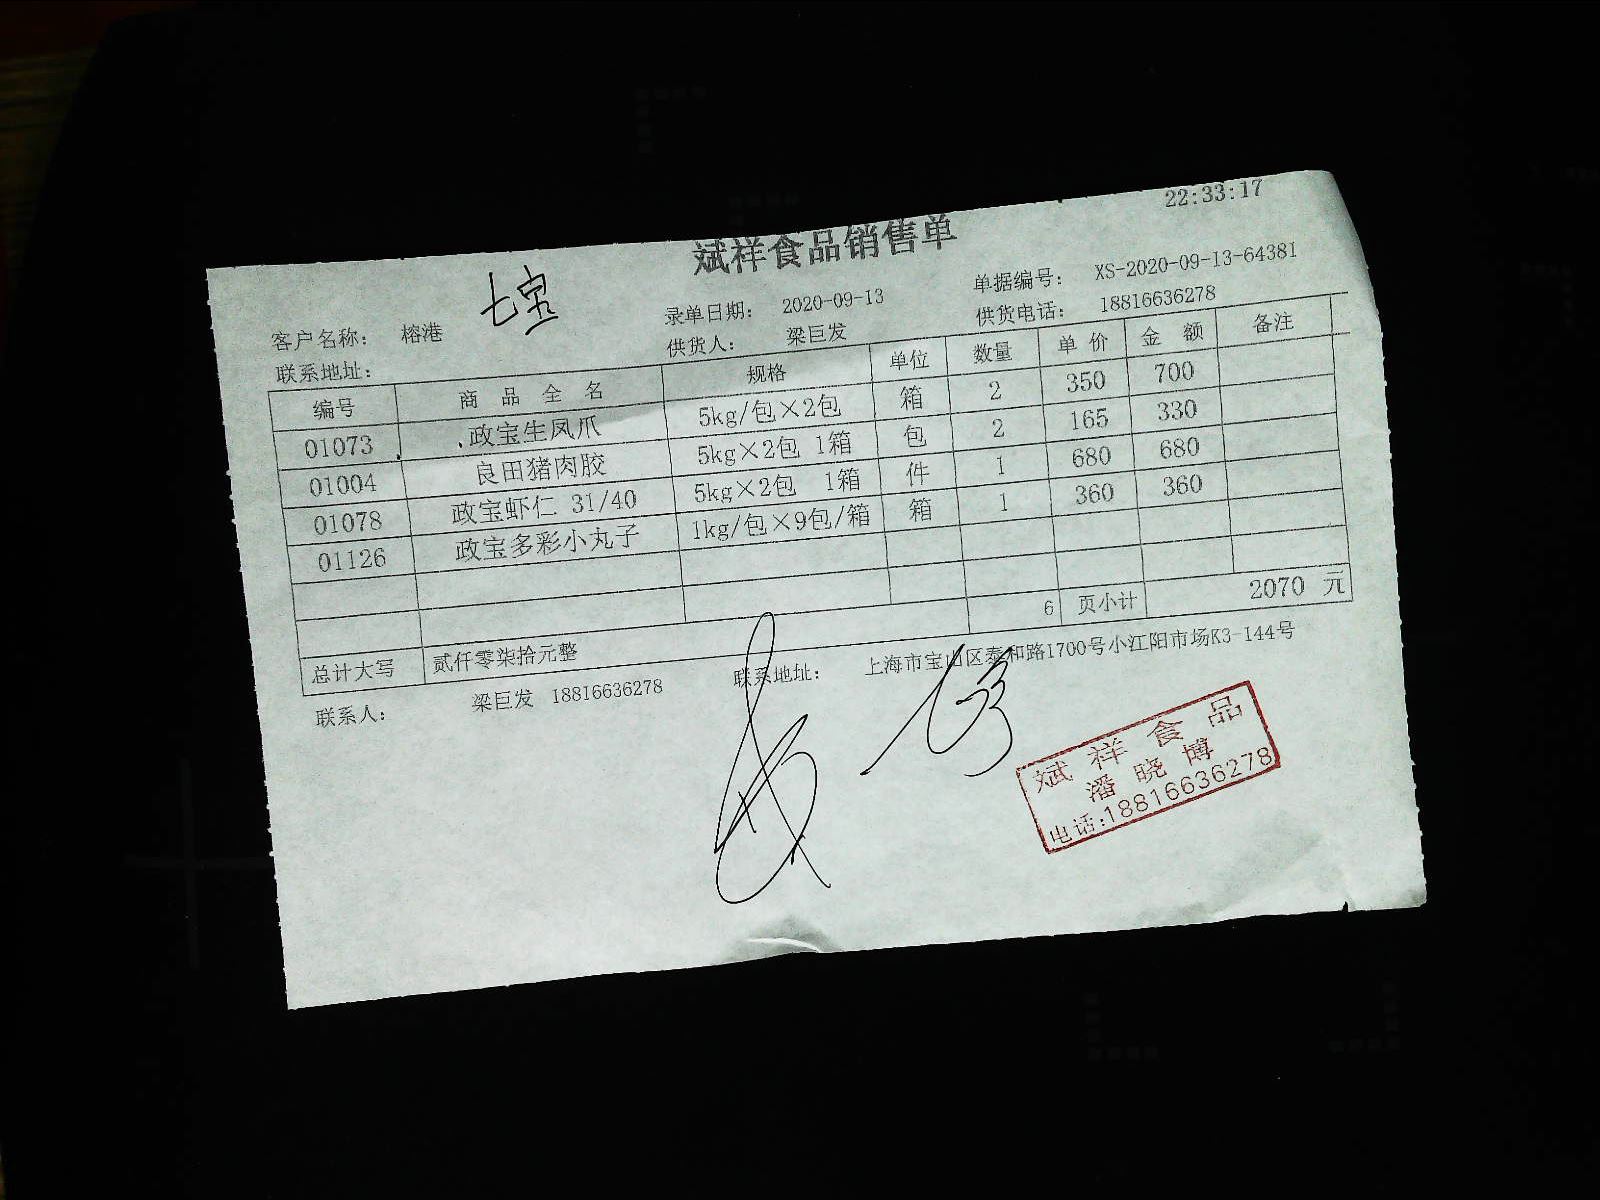 22:33:17
斌祥食品销售单
七宝
客户名称: 榕港 录单日期: 2020-09-13 单据编号: XS-2020-09-13-64381
联系地址: 供货人: 梁巨发 供货电话: 18816636278
编号 商品全名 规格 单位 数量 单价 金额 备注
01073 政宝生凤爪 5kg/包×2包 箱 2 350 700
01004 良田猪肉胶 5kg×2包 1箱 包 2 165 330
01078 政宝虾仁 31/40 5kg×2包 1箱 件 1 680 680
01126 政宝多彩小丸子 1kg/包×9包/箱 箱 1 360 360
6 页小计 2070 元
总计大写 贰仟零柒拾元整
联系人: 梁巨发 18816636278 联系地址: 上海市宝山区泰和路1700号小江阳市场K3-144号
斌祥食品
潘晓博
电话:18816636278